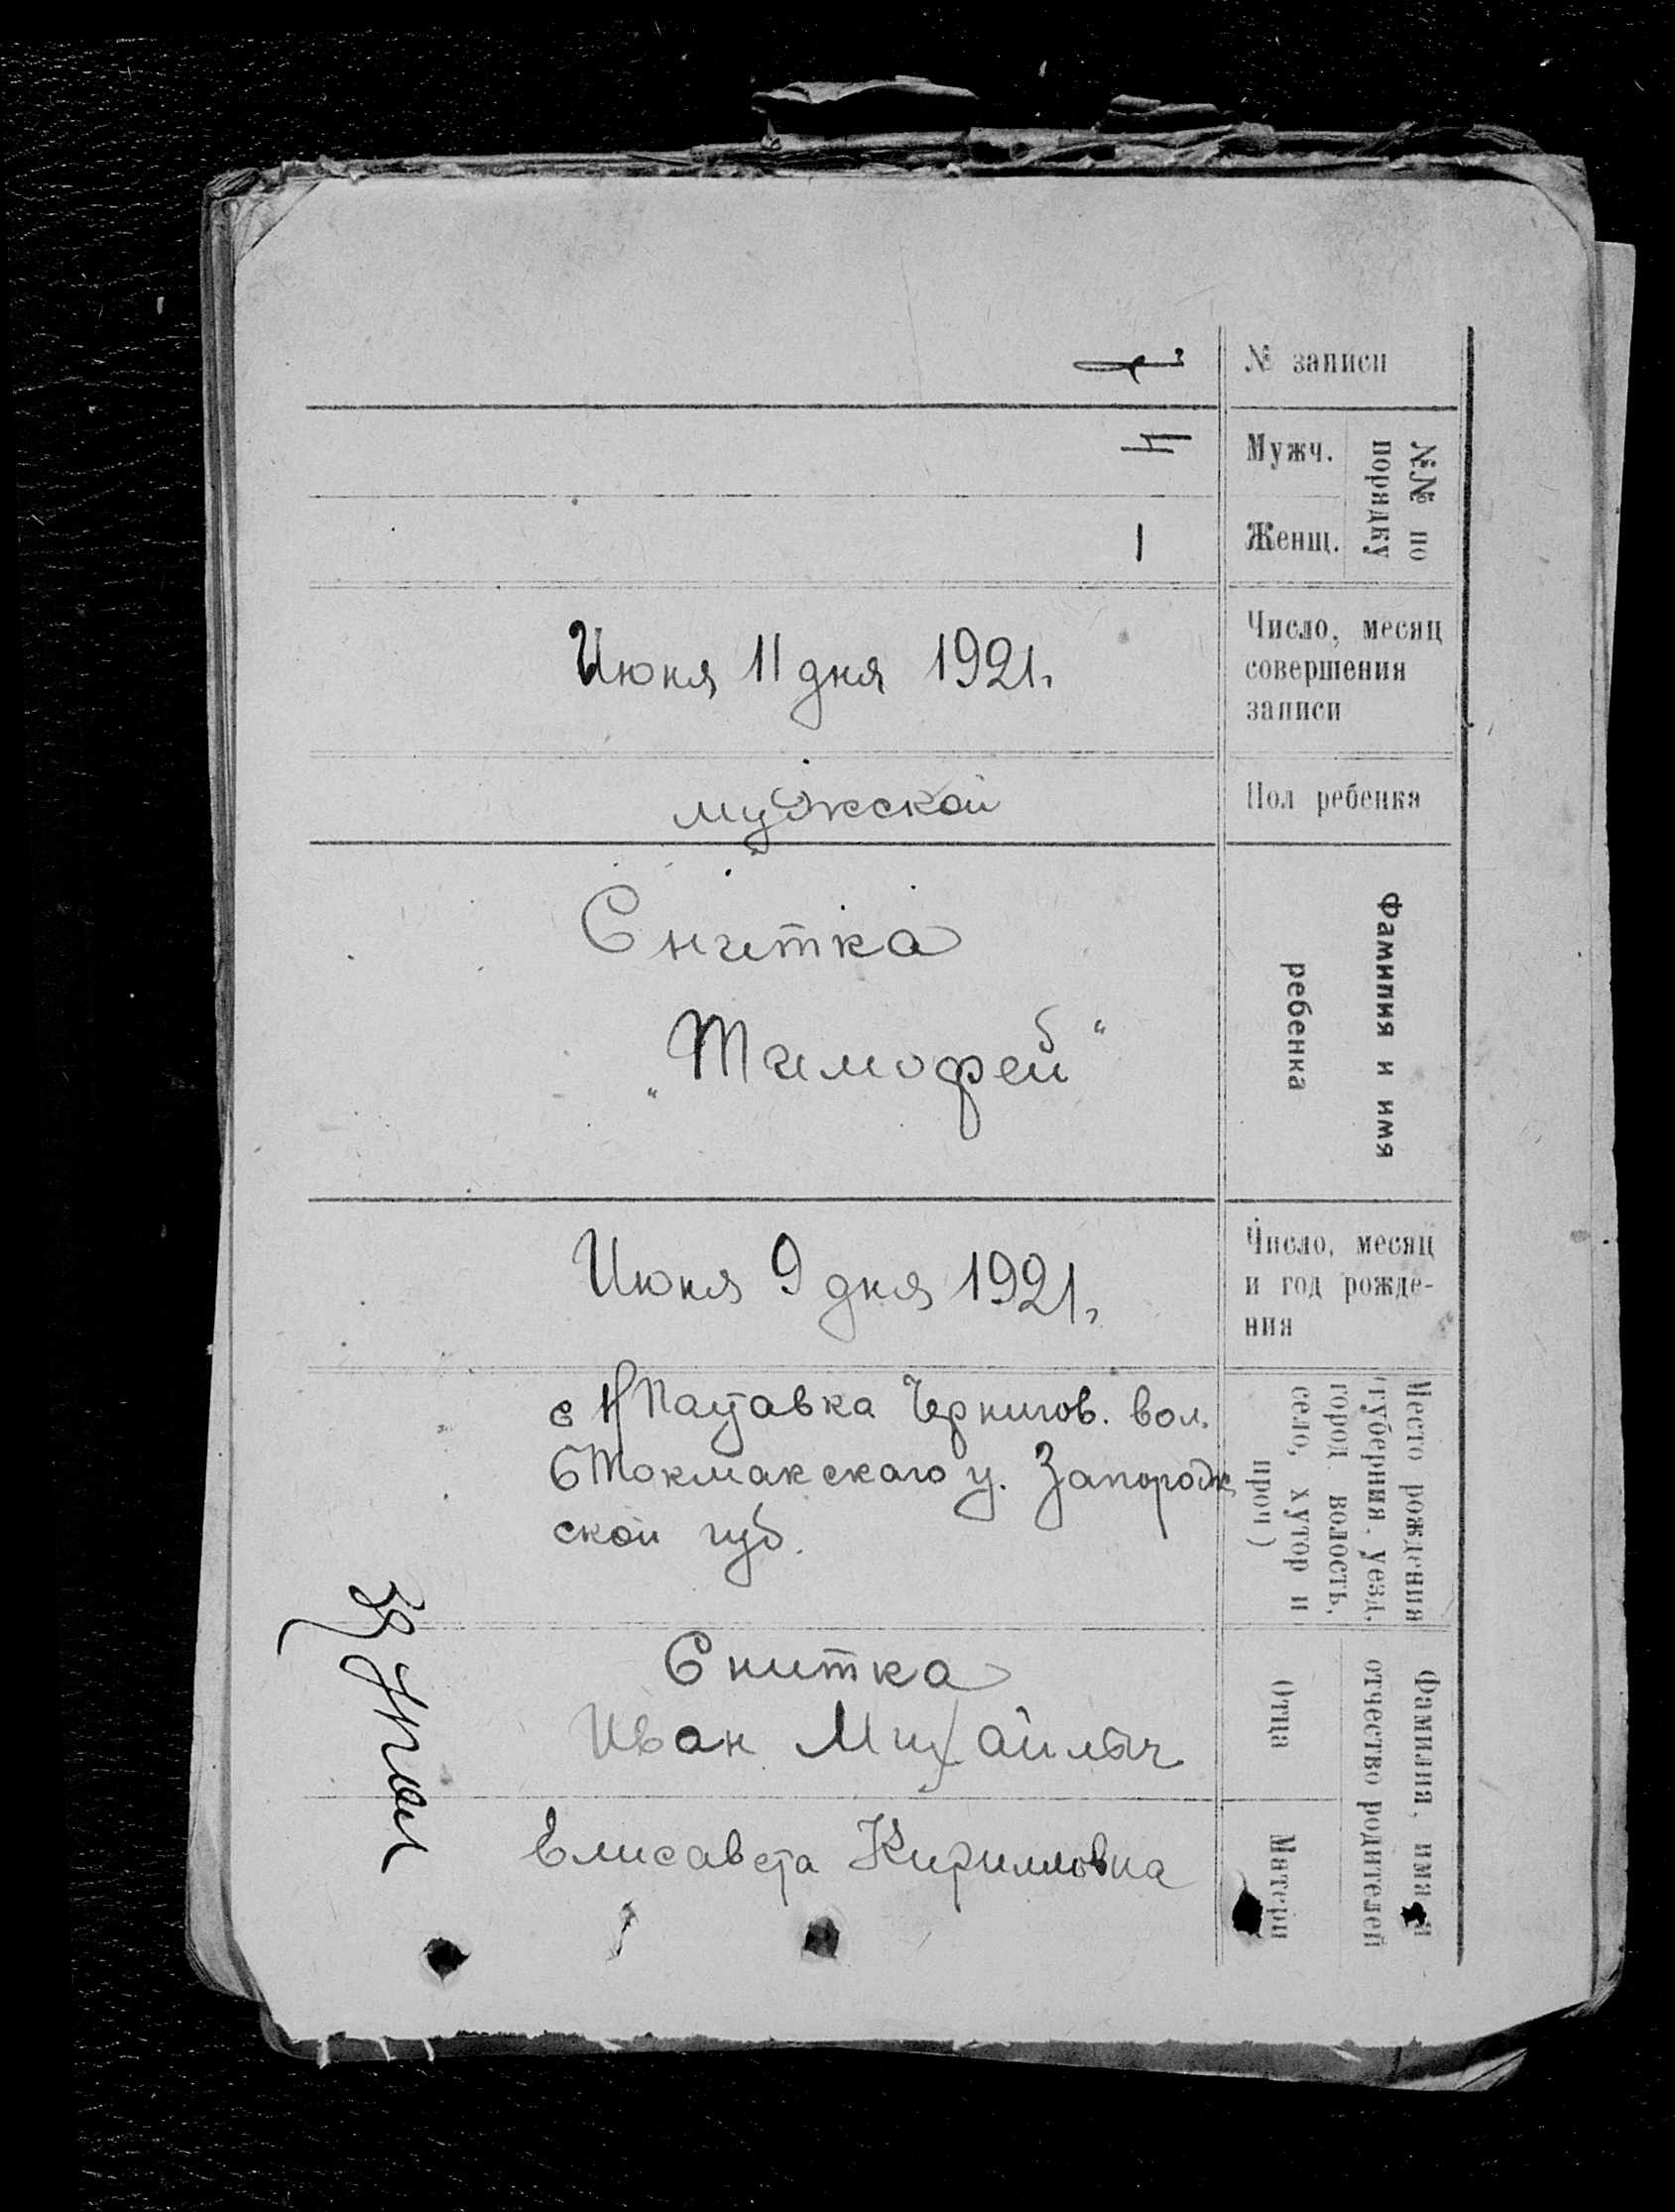 № записи
№№ по порядку
Мужч.
4
Женщ.
1
Число, месяц
совершения
записи
Июня 11 дня 1921.
Пол ребенка
мужской
Фамилия и имя
ребенка
Снитка
„Тимофей“
Число, месяц
и год рожде-
ния
Июня 9 дня 1921.
Место рождения
(губерния, уезд,
город волость,
село, хутор и
проч)
Чернигов. вол.
Б Токмакскаго у. Запорож
ской губ.
Фамилия, имя и
отчество родителей
Отца
Снитка
Иван Михайлыч
Матери
Елисавета Кирилловна